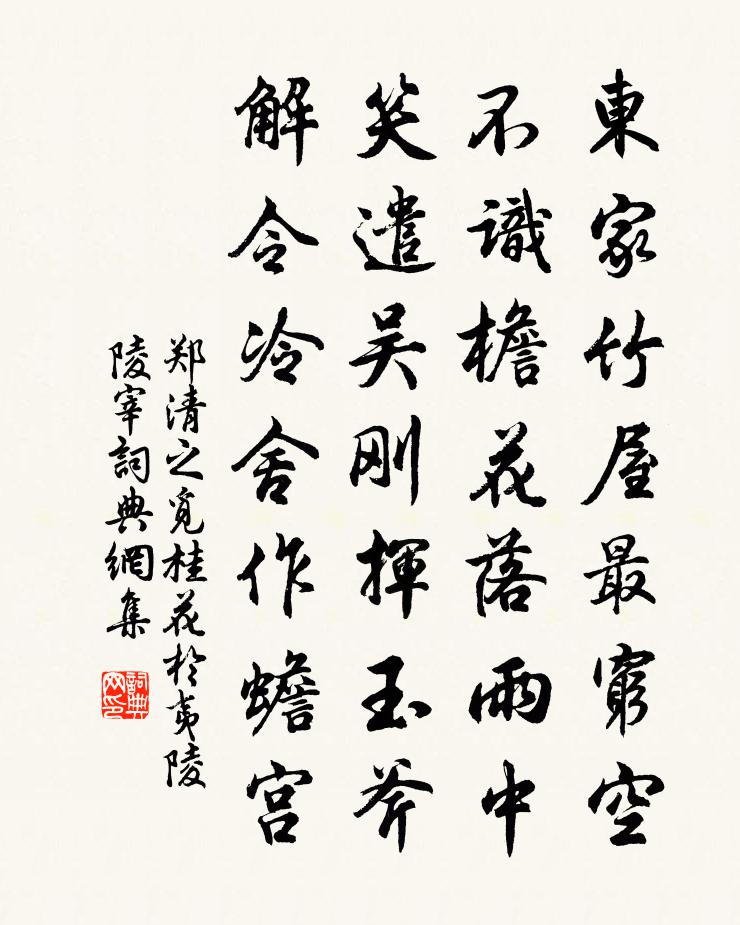 東家竹屋最窮空
不識檐花落雨中
笑遣吴刚揮玉斧
解令冷舍作蟾宫
郑清之覓桂花於夷陵
陵宰詞典網集
詞典网印